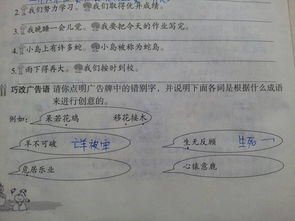 2.我们努力学习。我们取得优异成绩。
3.我晚睡一会儿觉。我要把今天的作业写完。
4.小岛上有许多蛇。小岛被称为蛇岛。
5.雨下得再大。我们按时到校。
巧改广告语 请你点明广告牌中的错别字，并说明下面各词是根据什么成语
来进行创意的。
例如：呆若花鸡 移花接木
羊不可破 生无反顾
急居乐业 心猿意鹿